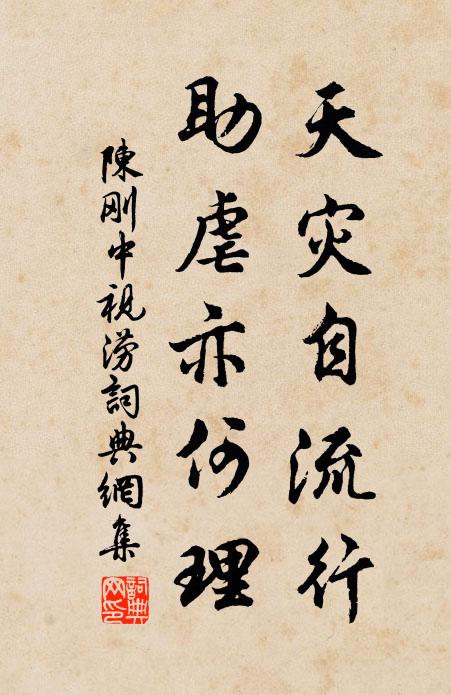 天灾自流行
助虐亦何理
陳刚中視涝詞典網集
詞典网印